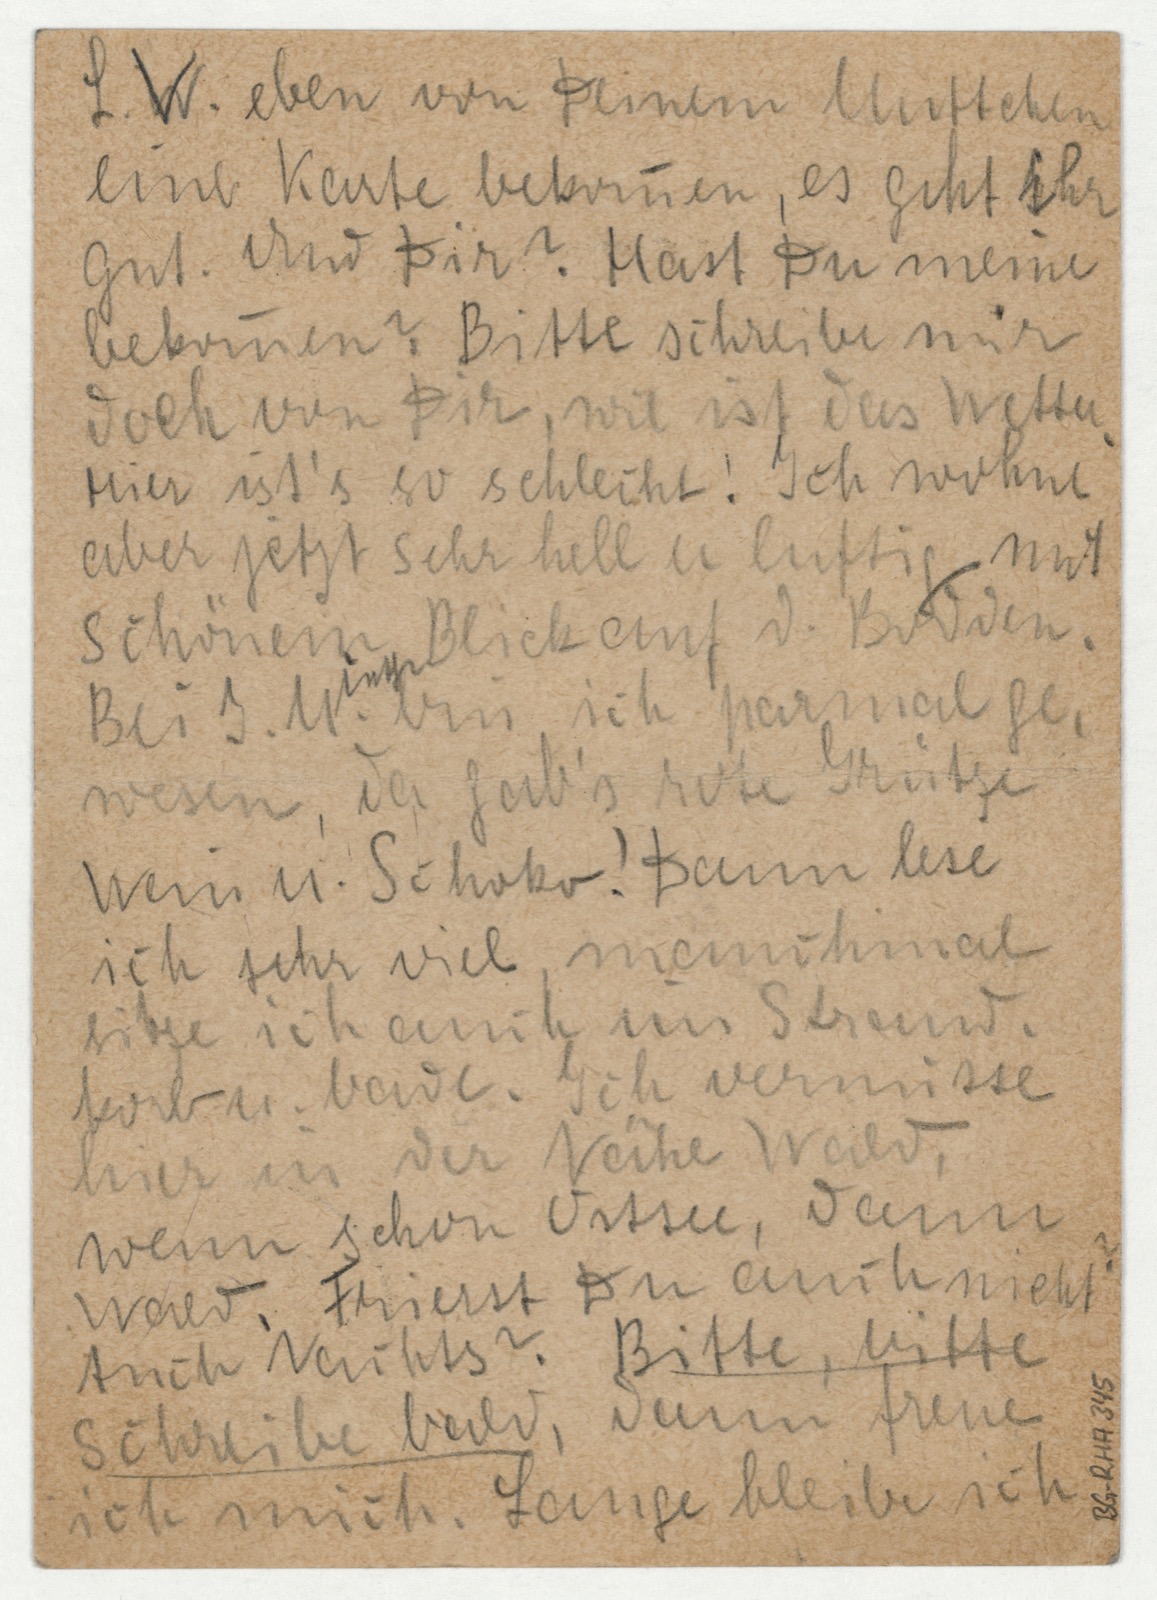 L. W. eben von Deinem Muttchen
eine Karte bekom̄en, es geht ihr
gut. Und Dir? Hast Du meine
bekom̄en? Bitte schreibe mir
doch von Dir, wie ist das Wetter.
Hier ist's so schlecht! Ich wohne
aber jetzt sehr hell u luftig mit
schönem Blick auf d. Bodden.
Bei I. bin ich parmal ge-
wesen, da gab's rote Grütze
Wein u. Schoko! Dann lese
ich sehr viel, manchmal
sitze ich auch im Strand-
korb u. bade. Ich vermisse
hier in der Nähe Wald,
wenn schon Ostsee, dann
Wald. Frierst Du auch nicht?
Auch Nachts? Bitte, bitte
schreibe bald, dann freue
ich mich. Lange bleibe ich
BG-RHA 345